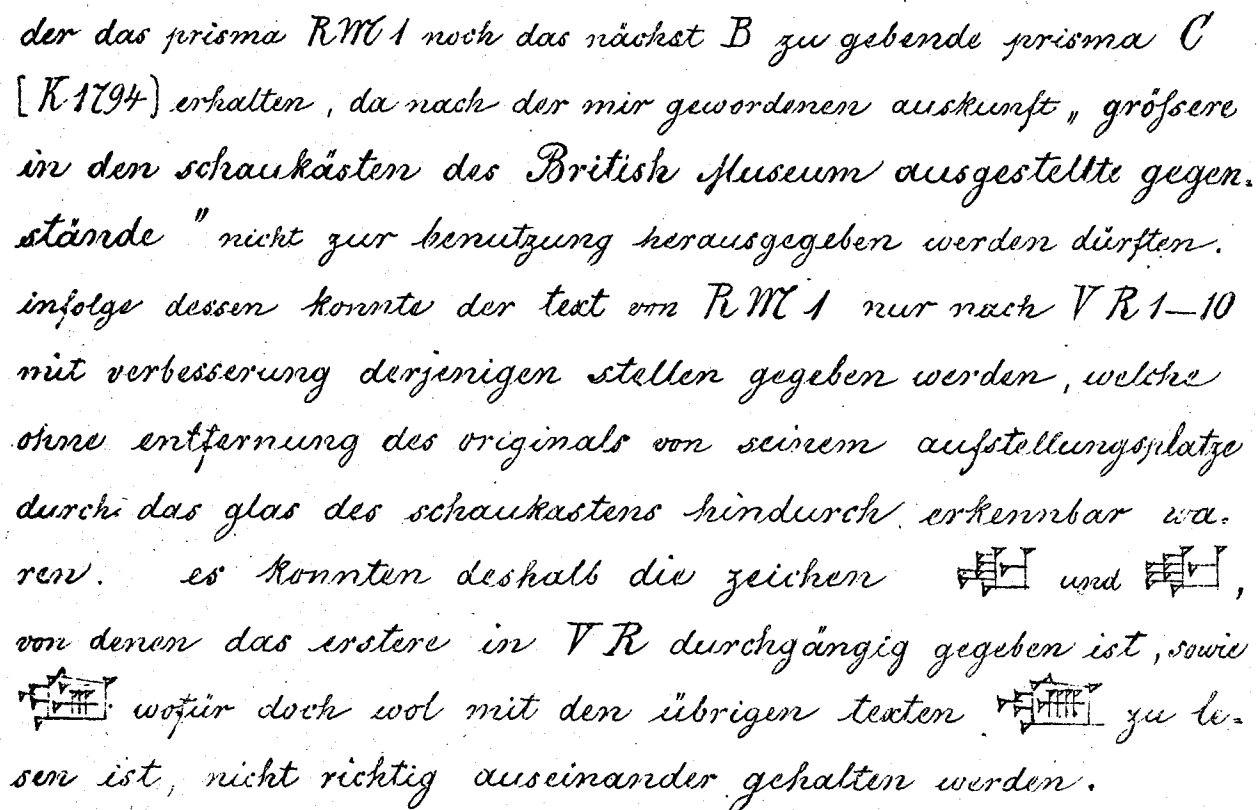 der das prisma RM 1 noch das nächst B zu gebende prisma C
[K 1794] erhalten, da nach der mir gewordenen auskunft „größere
in den schaukästen des British Museum ausgestellte gegen-
stände" nicht zur benutzung herausgegeben werden dürften.
infolge dessen konnte der text von RM 1 nur nach V R 1—10
mit verbesserung derjenigen stellen gegeben werden, welche
ohne entfernung des originals von seinem aufstellungsplatze
durch das glas des schaukastens hindurch erkennbar wa-
ren. es konnten deshalb die zeichen und ,
von denen das erstere in V R durchgängig gegeben ist, sowie
wofür doch wol mit den übrigen texten zu le-
sen ist, nicht richtig auseinander gehalten werden.